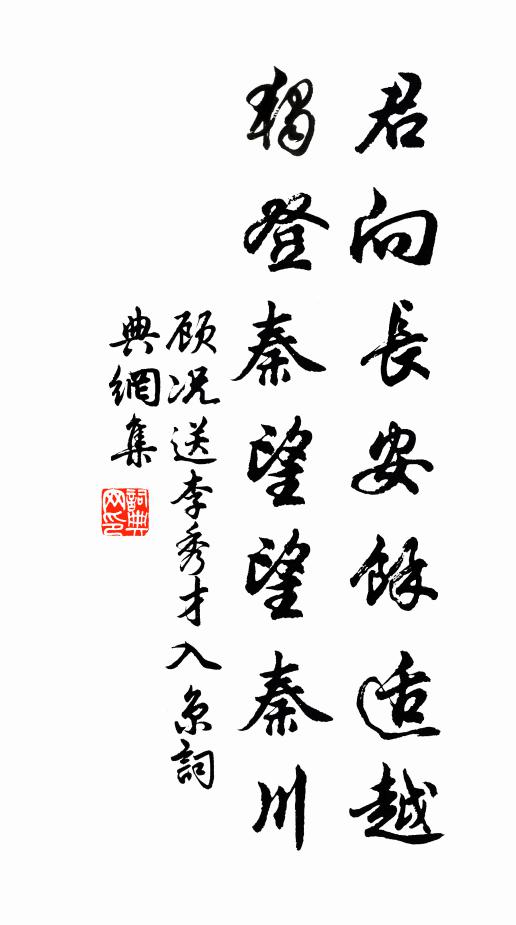 君向長安餘适越
獨登秦望望秦川
顾况送李秀才入京詞
典網集
詞典网印